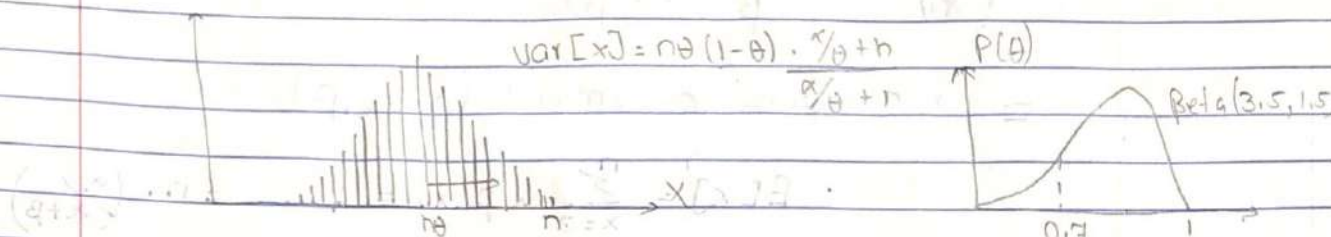 var[x] = nθ(1-θ) · (α/θ + n)/(α/θ + n) P(θ)
Beta(3.5, 1.5
X
nθ n 0.7 1